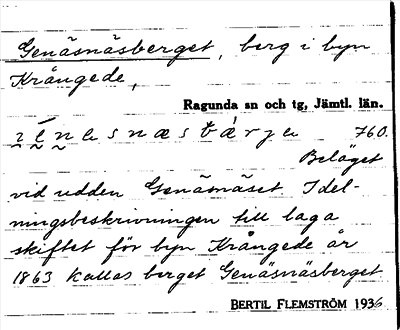 Genäsnäsberget, berg i byn
Krångede,
Ragunda sn och tg, Jämtl. län.
760.
Beläget
vid udden Genäsnäset. I del-
ningsbeskrivningen till laga
skiftet för byn Krångede år
1863 kallas berget Genäsnäsberget
BERTIL FLEMSTRÖM 1936